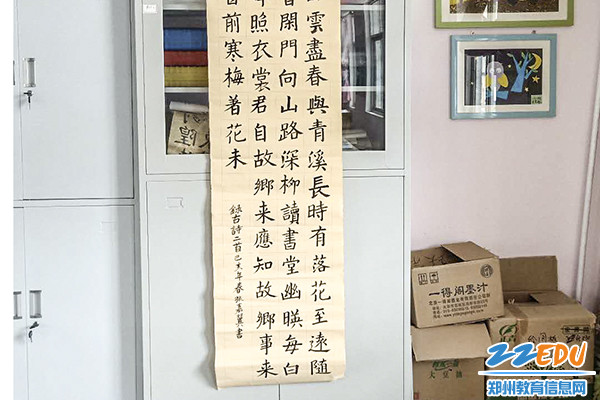 雲盡春與青溪長時有落花至遠隨
閒門向山路深柳讀書堂幽暎每白
照衣裳君自故鄉来應知故鄉事来
前寒梅著花未
録古詩二首己亥年春
書
一得阁墨汁
22EDU
郑州教育信息网